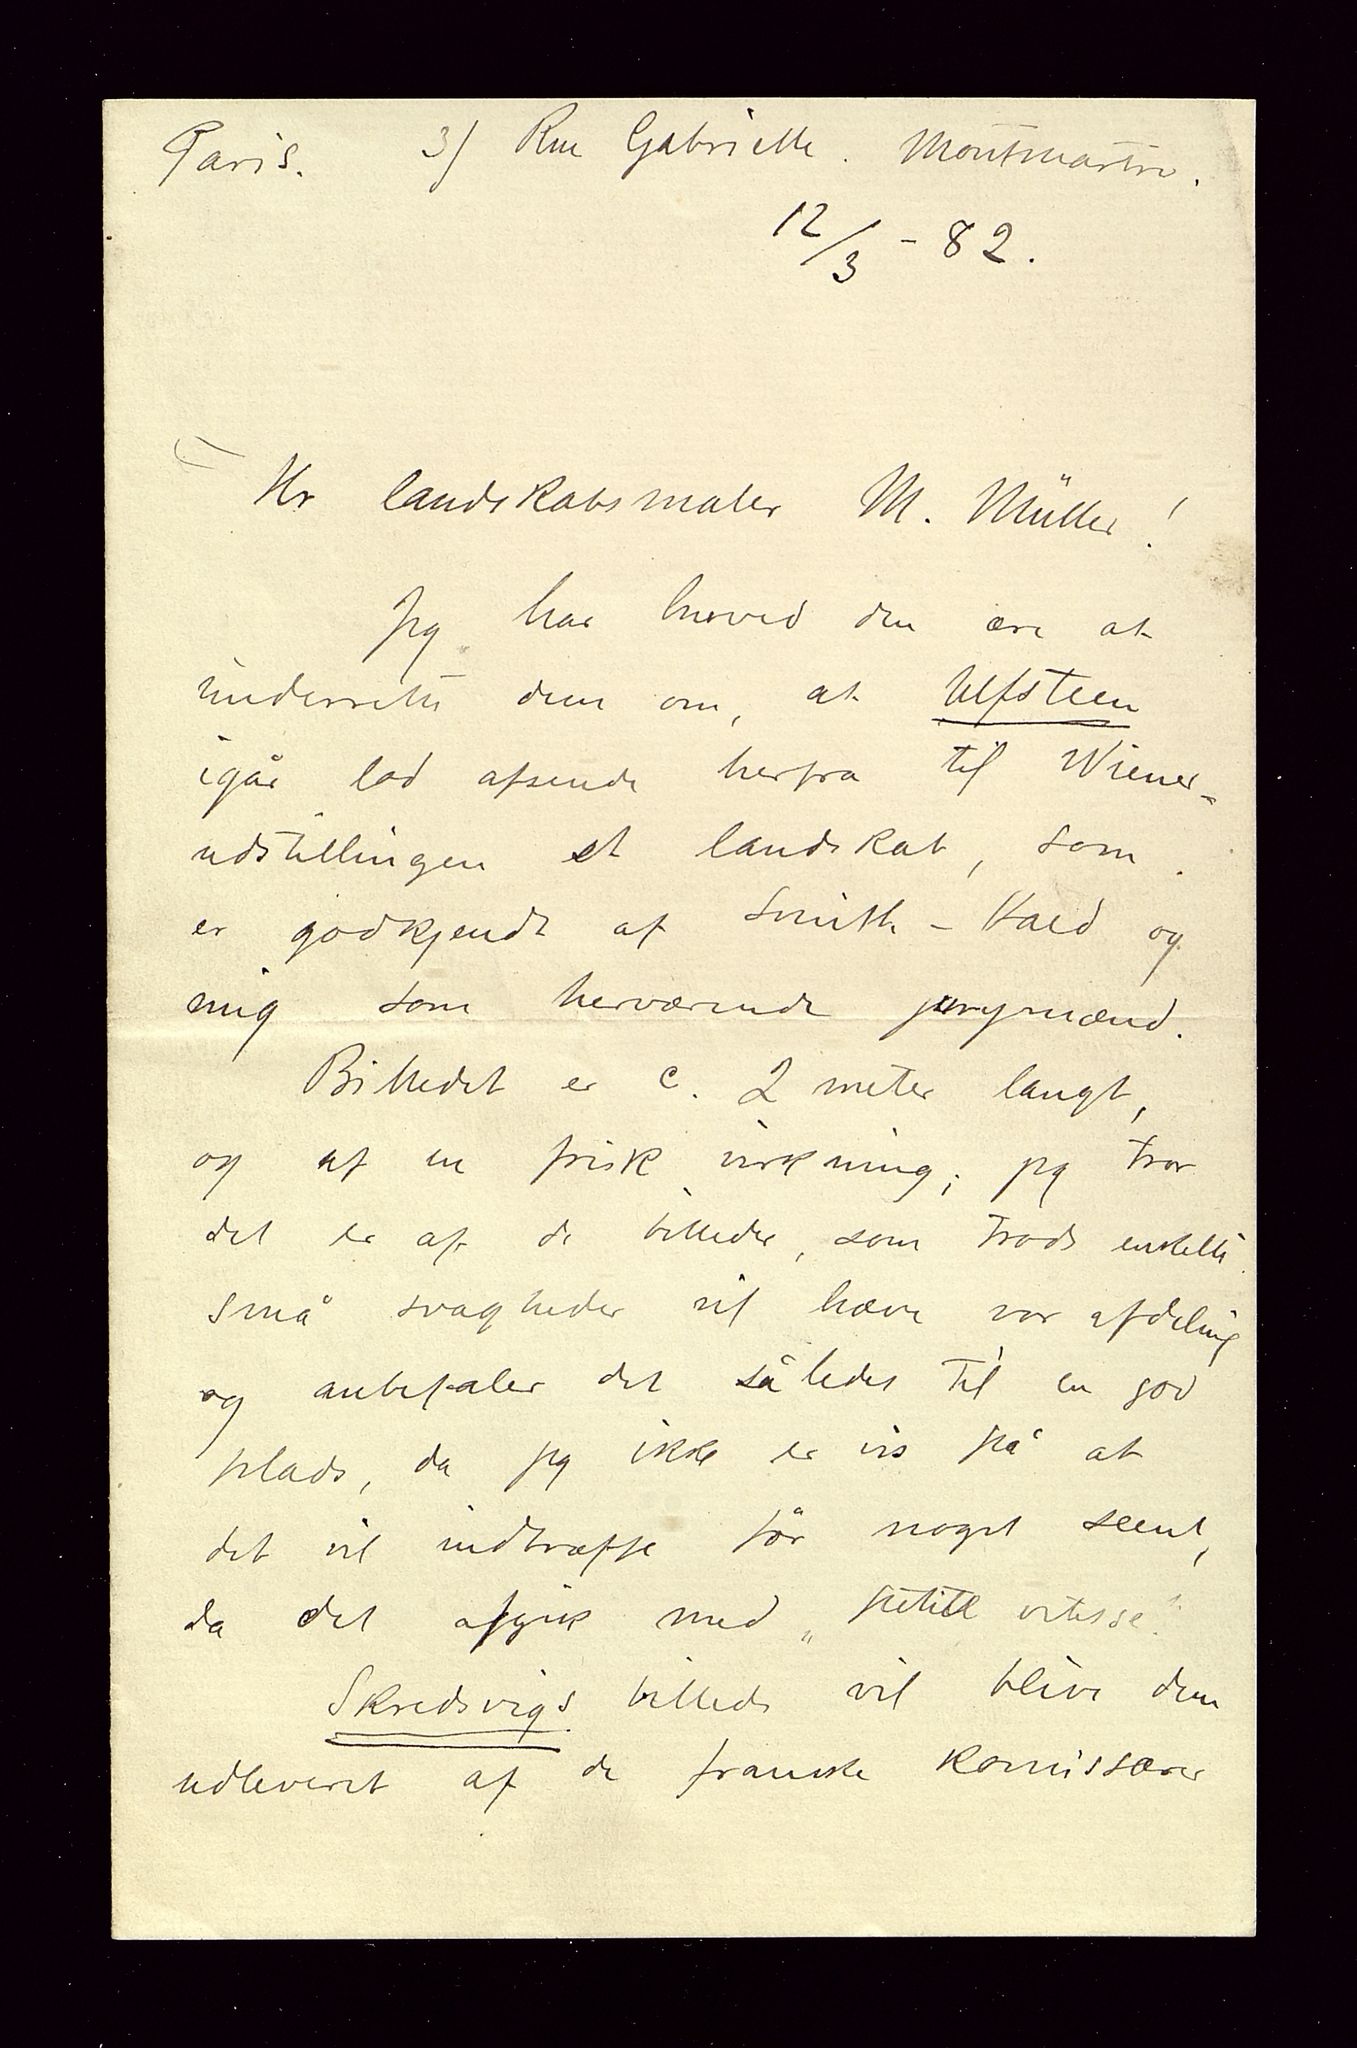 Paris. 3) Rue Gabrielle. Montmartre.
12/3 - 82.
Hr landskabsmaler M. Müller!
Jeg har herved den ære at
underrette dem om, at Ulfsteen
igår lod afsende herfra til Wiener-
udstillingen et landskab, som
er godkjendt af Smith-Hald og
mig som herværende jurymænd.
Billedet er c. 2 meter langt,
og af en frisk virkning; jeg tror
det er af de billeder, som trods enkelte
små svagheder vil hæve vor afdeling
og anbefaler det således til en god
plads, da jeg ikke er vis på at
det vil indtræffe før noget seent,
da det afgik med „petite vitesse".
Skredsvigs billede vil blive dem
udleveret af de franske komissærer